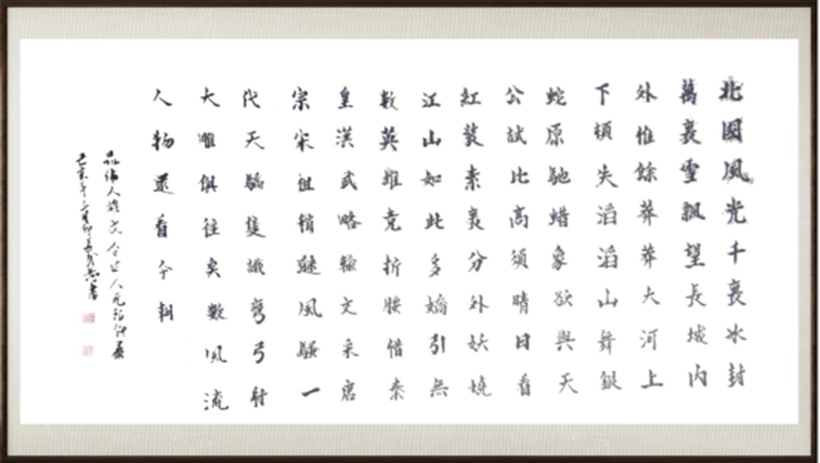 北國風光千裏冰封
萬裏雪飄望長城內
外惟餘莽莽大河上
下頓失滔滔山舞銀
蛇原馳蜡象欲與天
公試比高須晴日看
紅裝素裹分外妖嬈
江山如此多嬌引無
數英雄竞折腰惜秦
皇漢武略輸文采唐
宗宋祖稍遜風騷一
代天驕隻識彎弓射
大雕俱往矣數風流
人物還看今朝